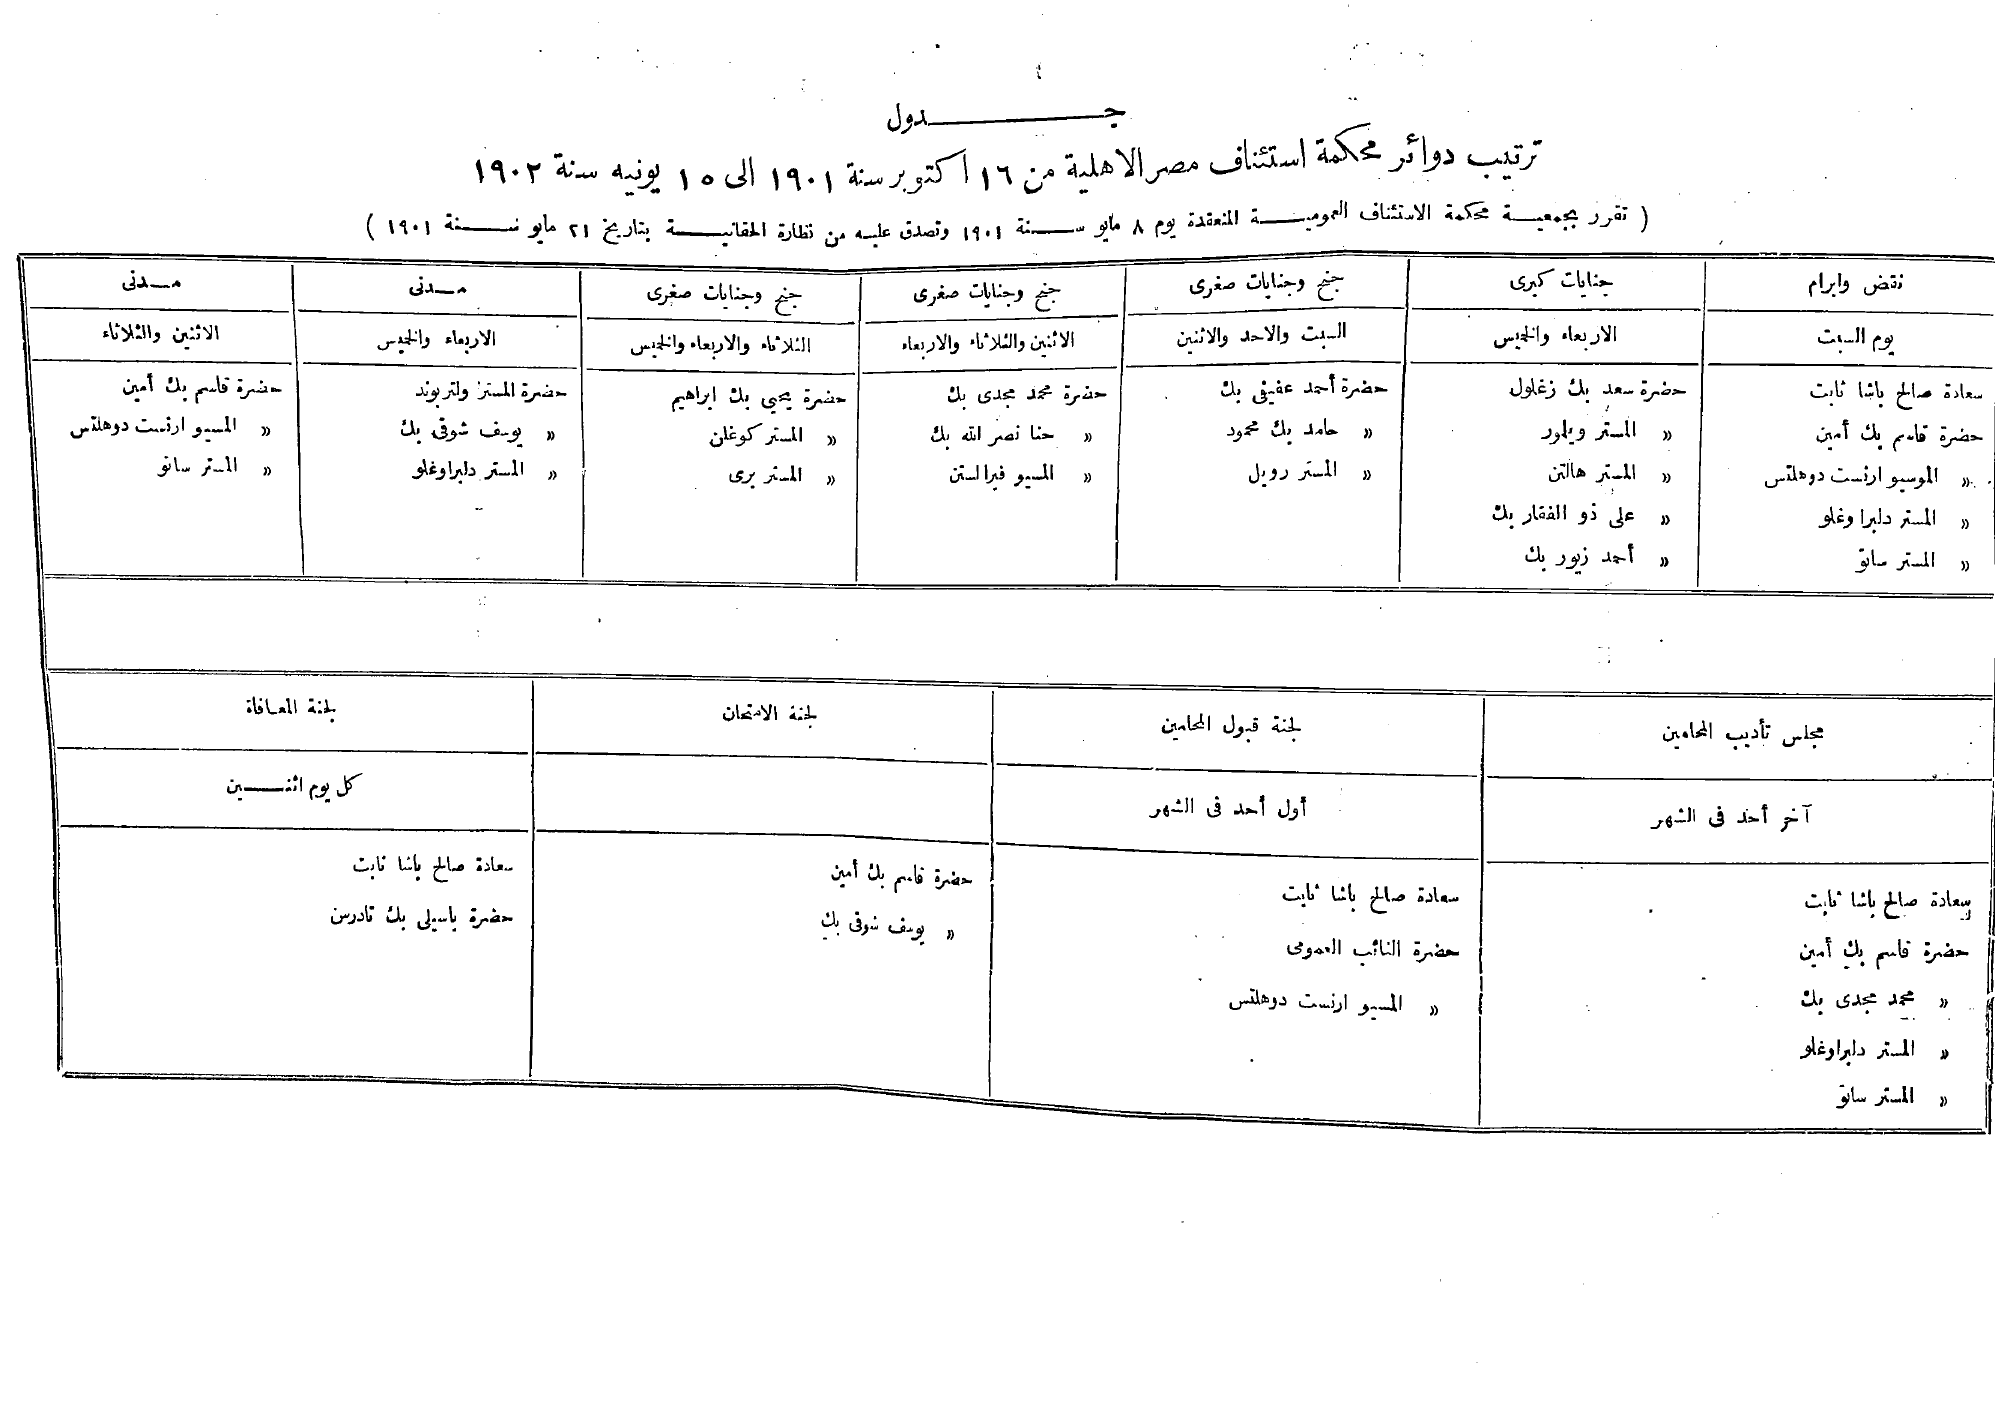 جدول
ترتيب دوائر محكمة استئناف مصر الاهلية من ١٦ اكتوبر سنة ١٩٠١ الى ١٥ يونيه سنة ١٩٠٢
( تقرر بجمعية محكمة الاستئناف العمومية المنعقدة يوم ٨ مايو سنة ١٩٠١ وتصدق عليه من نظارة الحقانية بتاريخ ٢١ مايو سنة ١٩٠١ )
نقض وابرام
يوم السبت
سعادة صالح باشا ثابت
حضرة قاسم بك أمين
» الموسيو ارنست دوهلتس
» المستر دلبرا وغلو
» المستر ساتو
جنايات كبرى
الاربعاء والخميس
حضرة سعد بك زغلول
» المستر ويلمور
» المستر هالتن
» على ذو الفقار بك
» أحمد زيور بك
جنح وجنايات صغرى
السبت والاحد والاثنين
حضرة أحمد عفيفى بك
» حامد بك محمود
» المستر رويل
جنح وجنايات صغرى
الاثنين والثلاثاء والاربعاء
حضرة محمد مجدى بك
» حنا نصر الله بك
» المسيو فيرالستن
جنح وجنايات صغرى
الثلاثاء والاربعاء والخميس
حضرة يحيى بك ابراهيم
» المستر كوغلن
» المستر برى
مدنى
الاربعاء والخميس
حضرة المستر ولتربوند
» يوسف شوقى بك
» المستر دلبراوغلو
مدنى
الاثنين والثلاثاء
حضرة قاسم بك أمين
» المسيو ارنست دوهلتس
» المستر ساتو
مجلس تأديب المحامين
آخر أحد فى الشهر
سعادة صالح باشا ثابت
حضرة قاسم بك أمين
» محمد مجدى بك
» المستر دلبراوغلو
» المستر ساتو
لجنة قبول المحامين
أول أحد فى الشهر
سعادة صالح باشا ثابت
حضرة النائب العمومى
» المسيو ارنست دوهلتس
لجنة الامتحان
حضرة قاسم بك أمين
» يوسف شوقى بك
لجنة المعافاة
كل يوم اثنين
سعادة صالح باشا ثابت
حضرة باسيلى بك تادرس